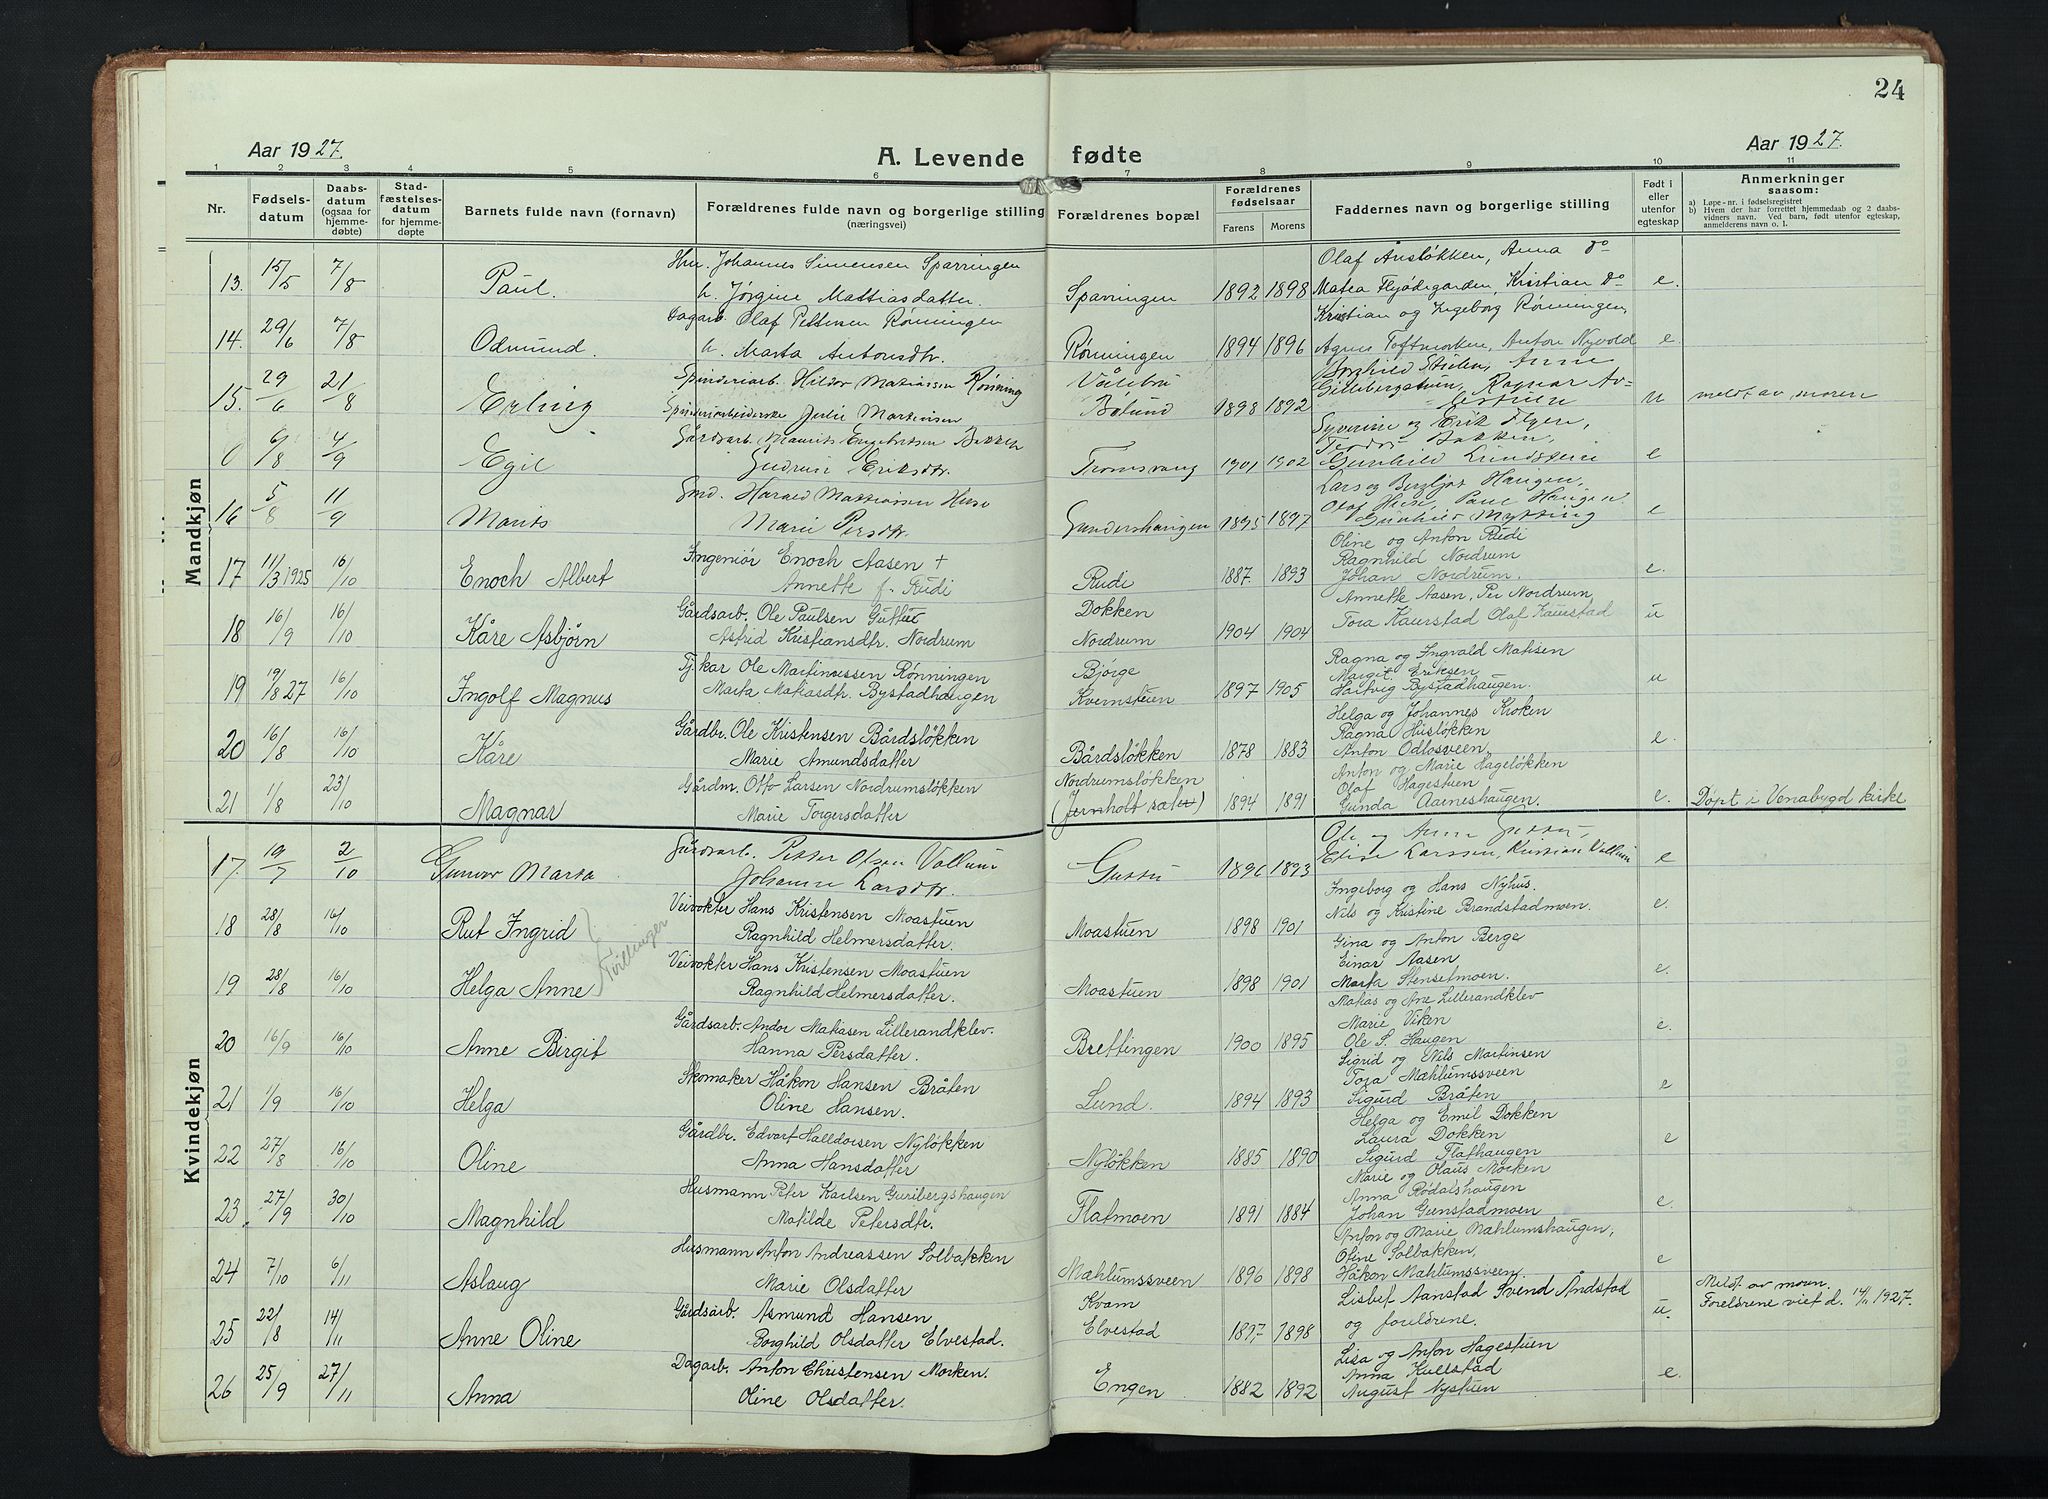 24
Aar 1927.
A. Levende fødte
Aar 1927.
1 2 3 4 5 6 7 8 9 10 11
Nr.
Fødselsdatum
Daabsdatum (ogsaa for hjemmedøbte)
Stadfæstelsesdatum for hjemmedøpte
Barnets fulde navn (fornavn)
Forældrenes fulde navn og borgerlige stilling (næringsvei)
Forældrenes bopæl
Forældrenes fødselsaar
Farens Morens
Faddernes navn og borgerlige stilling
Født i eller utenfor egteskap
Anmerkninger saasom:
a) Løpe-nr. i fødselsregistret
b) Hvem der har forrettet hjemmedaab og 2 daabsvidners navn. Ved barn, født utenfor egteskap, anmelderens navn o. l.
Mandkjøn
13. 15/5 7/8 Paul. Johannes Simensen Sparringen
h. Jørgine Mattiasdatter. Sparringen 1892 1898 e.
Olaf Anna do
Matea Kristian do
14. 29/6 7/8 Odmund. Dagarb. Olaf Pettersen Rønningen
h. Marta Antonsdtr. Rønningen 1894 1896 e.
Kristian og Ingeborg Rønningen,
Agnes Toftmorken, Anton Nyvold
15. 29/6 21/8 Erling Spinderiarb. Hildor Matiassen Rønning
Spinderiarbeiderske Julie Martinsen
Vålebru
Bølund 1898 1892 u meldt av moren
Borghild Anne
Ragnar
0 6/8 4/9 Egil Gårdsarb. Maurits Engebretsen Bakken
Gudrun Eriksdtr. Tromsvang 1901 1902 e
Syverine og Erik
Bakken,
Gunhild Lundstein
16 5/8 11/9 Marits Harald Mattiassen
Marie Persdtr. Gundershaugen 1895 1897 e
Lars og Bergljot Haugen,
Olaf Paul Haugen
Gunhild Mytting
17 11/3 1925 16/10 Enoch Albert Ingeniør Enoch Aasen +
Annette f. Rudi Rudi 1887 1893 e.
Oline og Anton Rudi
Ragnhild Nordrum
Johan Nordrum.
18 16/9 16/10 Kåre Asbjørn Gårdsarb. Ole Paulsen Guttu
Astrid Kristiansdtr. Nordrum
Dokken
Nordrum 1904 1904 u
Annette Aasen, Per Nordrum
Tora Kaurstad Olaf Kaurstad
19 19/8 27 16/10 Ingolf Magnus Tj.kar Ole Martinussen Rønningen
Marta Matiasdtr. Bystadhaugen
Bjørge
Kvernstuen 1897 1905 u
Ragna og Ingvald Matisen
Margit Eriksen
Hartvig Bystadhaugen.
20 16/8 16/10 Kåre Gårdbr. Ole Kristensen Bårdsløkken
Marie Amundsdatter Bårdsløkken 1878 1883 e.
Helga og Johannes Kroken
Ragna Husløkken
Anton Odlosveen.
21 1/8 23/10 Magnar Gårdm. Otto Larsen Nordrumsløkken
Marie Torgersdatter
Nordrumsløkken
(Jernholt sæter) 1894 1891 e. Døpt i Venabygd kirke
Anton og Marie Hageløkken
Olaf Hagestuen
Gunda Aarneshaugen.
Kvindekjøn
17. 19/7 2/10 Gunvor Marta Gårdsarb. Petter Olsen Vollum
Johanne Larsdtr. Guttu 1896 1893 e
Ole og Anne Guttu,
Elise Larssen, Kristian Vollum
18 28/8 16/10 Rut Ingrid Veivokter Hans Kristensen Moastuen
Ragnhild Helmersdatter. Moastuen 1898 1901 e.
Ingeborg og Hans Nyhus.
Nils og Kristine Brandstadmoen.
Tvillinger
19 28/8 16/10 Helga Anne Veivokter Hans Kristensen Moastuen
Ragnhild Helmersdatter. Moastuen 1898 1901 e.
Gina og Anton Berge
Einar Aasen
Marta Stenselmoen.
20 16/9 16/10 Anne Birgit Gårdsarb. Andor Matiasen Lillerandklev.
Hanna Persdatter. Brettingen 1900 1895 e.
Matias og Ane Lillerandklev
Marie Viken
Ole S. Haugen
21 1/9 16/10 Helga Skomaker Håkon Hansen Bråten
Oline Hansen. Lund. 1894 1893 e
Sigrid og Nils Martinsen
Tora Mæhlumssveen
Sigurd Bråten
22 27/8 16/10 Oline Gårdbr. Edvart Halldorsen Nyløkken
Anna Hansdatter Nyløkken 1885 1890 e
Helga og Emil Dokken
Laura Dokken
Sigurd Flathaugen
23. 27/9 30/10 Magnhild Husmann Peter Karlsen Guribergshaugen
Matilde Petersdtr. Flatmoen 1891 1884 e.
Marie og Olaus Morken
Anna Rødalshaugen
Johan Gunstadmoen
24 7/10 6/11 Aslaug Husmann Anton Andreassen Solbakken
Marie Olsdatter Mæhlumssveen 1896 1898 e
Anton og Marie Mæhlumshaugen,
Oline Solbakken,
Håkon Mæhlumssveen.
25 22/8 14/11 Anne Oline Gårdsarb. Asmund Hansen
Borghild Olsdatter Elvestad.
Kvam
Elvestad 1897 1898 u.
Lisbet Aanstad Svend Åndstad
og foreldrene.
Meldt av moren.
Foreldrene viet d. 14/11 1927.
26 25/9 27/11 Anna Dagarb. Anton Christensen Morken.
Oline Olsdatter. Engen 1882 1892 e.
Lisa og Anton Hagestuen
Anna Kullstad
August Nystuen